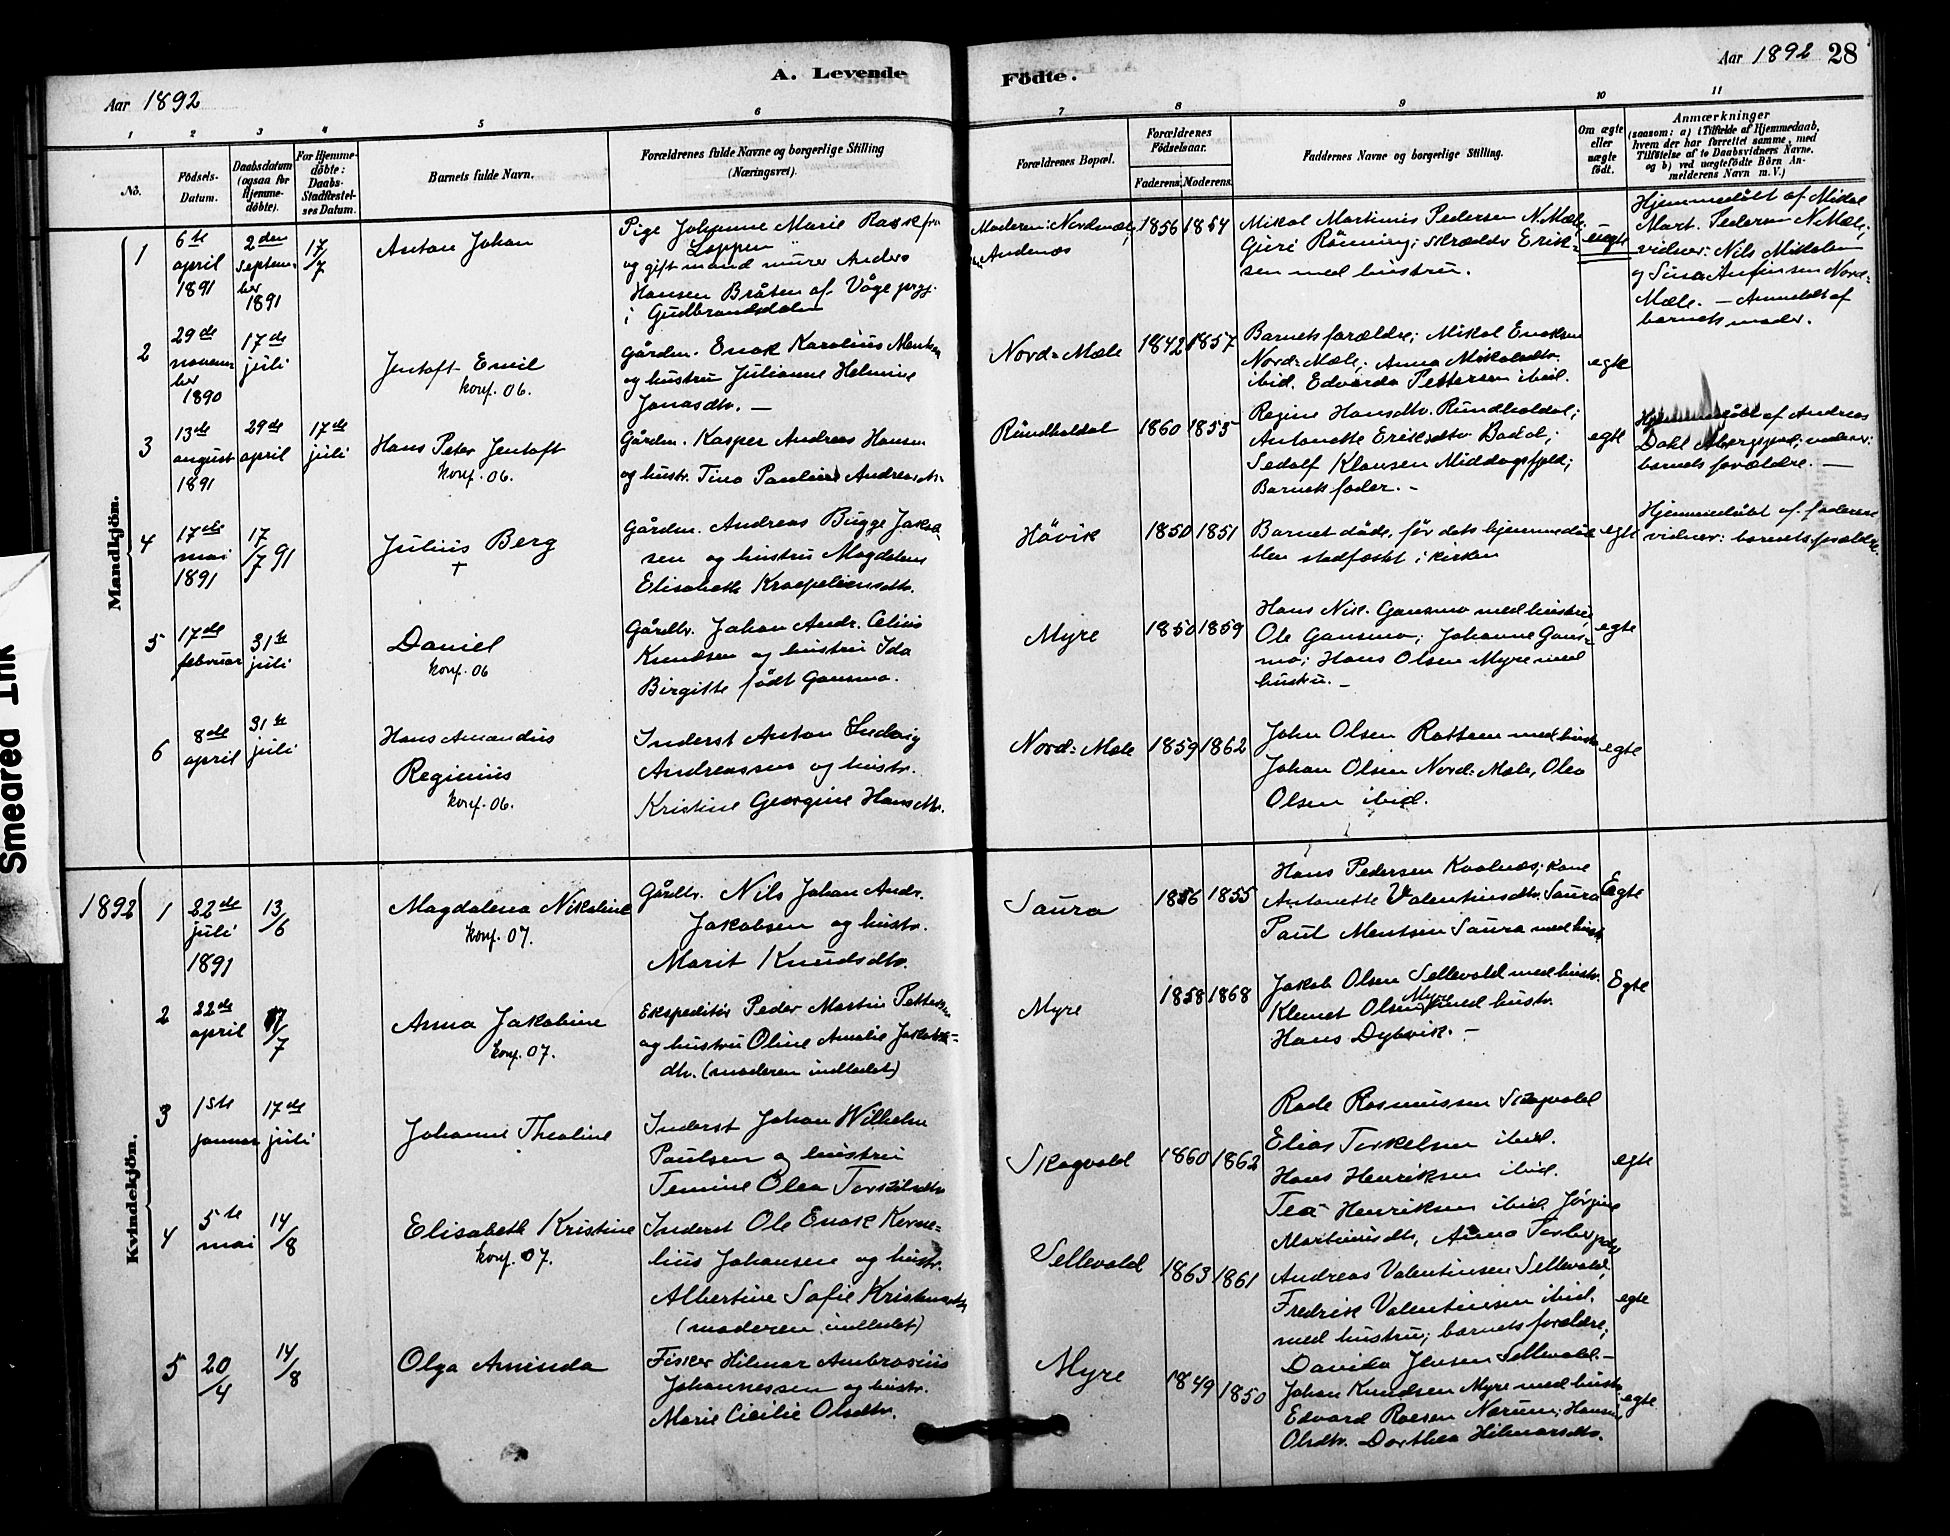 Aar 1892
A. Levende
Fødte.
Aar 1892 28
1 2 3 4 5 6 7 8 9 10 11
Nô.
Födsels-
Datum.
Daabsdatum
(ogsaa for
Hjemme-
döbte).
For Hjemme-
döbte:
Daabs-
Stadfæstel-
ses Datum.
Barnets fulde Navn.
Forældrenes fulde Navne og borgerlige Stilling
(Næringsvei).
Forældrenes Bopæl.
Forældrenes
Födselsaar.
Faderens. Moderens.
Faddernes Navne og borgerlige Stilling.
Om ægte
eller
uægte
født.
Anmærkninger
(saasom: a) i Tilfælde af Hjemmedaab,
hvem der har forrettet samme, med
Tilföielse af to Daabsvidners Navne,
og b) ved uægtefödte Börn An-
melderens Navn m. V.)
Mandkjön.
1
6te
april
1891
2den
septem-
ber
1891
17/7
Anton Johan
Pige Johanne Marie Rask fra
Loppen
og gift mand murer Anders
Hansen Bråten af Våge prgj.
i Gudbrandsdalen
Moderen: Nordmæle,
Andenæs
1856 1854
Mikal Martinus Pedersen N. Mæle;
Guri Rønning; skrædder Erik-
sen med hustru.
uegte
Hjemmedøbt af Mikal
Mart. Pedersen N. Mæle;
vidner: Nils Mikalsen
og Sina Anfinsen Nord-
Mæle. — Anmeldt af
barnets moder.
2
29de
novem-
ber
1890
17de
juli
Jentoft Emil
konf. 06.
Gårdm. Enok Karolius
og hustru Julianne Helmine
Jonasdtr. —
Nord-Mæle
1842 1857
Barnets forældre; Mikal Enoksen
Nord-Mæle; Anna Mikalsdtr.
ibid. Edvarda Pettersen ibid.
egte
3
13de
august
1891
29de
april
17de
juli
Hans Peter Jentoft
konf. 06.
Gårdm. Kasper Andreas Hansen
og hustr. Tina Pauline Andreasdtr.
Rundholdal
1860 1855
Regine Hansdtr. Rundholdal;
Antonette Eriksdtr.
Sedolf Klausen Middagsfjeld;
Barnets fader. -
egte
Hjemmedøbt af Andreas
Dahl vidner:
barnets forældre. —
4
17de
mai
1891
17/7 91
Julius Berg
+
Gårdm. Andreas Bugge Jakob-
sen og hustru Magdalena
Elisabeth Kræpeliensdtr.
Høvik
1850 1851
Barnet døde, før dets hjemmedåb
blev stadfæstet i kirken
egte
Hjemmedøbt af faderen
vidner: barnets forældre.
5
17de
februar
31te
juli
Daniel
konf. 06
Gårdbr. Johan Andr. Celius
Knudsen og hustru Ida
Birgitte født Gansmo.
Myre
1850 1859
Hans Nik. Gansmo med hustru;
Ole Gansmo; Johanne Gans-
mo; Hans Olsen Myre med
hustru. -
egte
6
8de
april
31te
juli
Hans Amandus
Reginius
konf. 06.
Inderst Anton Ludvig
Andreassen og hustr.
Kristine Georgine Hansdtr.
Nord-Mæle
1859 1862
John Olsen med hustr.
Johan Olsen Nord-Mæle, Olea
Olsen ibid.
egte
Kvindekjön.
1892
1
22de
juli
1891
13/6
Magdalena Nikoline
konf. 07.
Gårdbr. Nils Johan Andr.
Jakobsen og hustr.
Marit Knudsdtr.
Saura
1856 1855
Hans Pedersen kone
Antonette Valentinsdtr. Saura
Paul Mentsen Saura med hustr.
Egte
2
22de
april
17/7
Anna Jakobine
konf. 07.
Ekspeditør Peder Martin Pettersen
og hustru Oline Amalie Jakobs-
dtr. (moderen indledet)
Myre
1858 1868
Jakob Olsen Sellevold med hustr.
Klemet Olsen Myre med hustr.
Hans Dybvik. -
Egte
3
1ste
januar
17de
juli
Johanne Thealine
Inderst Johan Wilhelm
Paulsen og hustru
Temine Olea Torkilsdtr.
Skogvold
1860 1862
Rasmussen Skogvold
Elias Torkelsen ibid.
Hans Henriksen ibid.
Tea Henriksen ibid. Jørgine
Martinusdtr,
egte
4
5te
mai
14/8
Elisabeth Kristine
konf. 07.
Inderst Ole Enok Korne-
lius Johansen og hustr.
Albertine Sofie
(moderen indledet)
Sellevold
1863 1861
Andreas Valentinsen Sellevold;
Fredrik Valentinsen ibid.
med hustru; barnets forældre;
Davida Jensen Sellevold.-
egte
5
20/4
14/8
Olga Aminda
Fisker Hilmar Ambrosius
Johannessen og hustr.
Marie Cicilie Olsdtr.
Myre
1849 1850
Johan Knudsen Myre med hustr.
Edvard Hansine
Olsdtr. Dorthea Hilmarsdtr.
egte
Smeared Ink